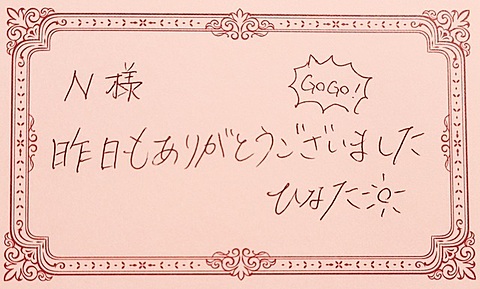 N 様
GOGO!
昨日もありがとうございました
ひなた